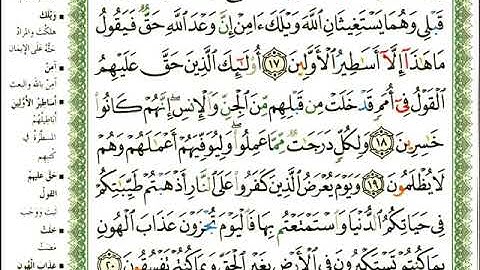 قَبْلِي وَهُمَا يَسْتَغِيثَانِ اللَّهَ وَيْلَكَ ءَامِنْ إِنَّ وَعْدَ اللَّهِ حَقٌّ فَيَقُولُ
مَا هَٰذَآ إِلَّآ أَسَٰطِيرُ ٱلْأَوَّلِينَ ١٧ أُو۟لَٰٓئِكَ ٱلَّذِينَ حَقَّ عَلَيْهِمُ
ٱلْقَوْلُ فِىٓ أُمَمٍ قَدْ خَلَتْ مِن قَبْلِهِم مِّنَ ٱلْجِنِّ وَٱلْإِنسِ إِنَّهُمْ كَانُوا۟
خَٰسِرِينَ ١٨ وَلِكُلٍّ دَرَجَٰتٌ مِّمَّا عَمِلُوا۟ وَلِيُوَفِّيَهُمْ أَعْمَٰلَهُمْ وَهُمْ
لَا يُظْلَمُونَ ١٩ وَيَوْمَ يُعْرَضُ ٱلَّذِينَ كَفَرُوا۟ عَلَى ٱلنَّارِ أَذْهَبْتُمْ طَيِّبَٰتِكُمْ
فِى حَيَاتِكُمُ ٱلدُّنْيَا وَٱسْتَمْتَعْتُم بِهَا فَٱلْيَوْمَ تُجْزَوْنَ عَذَابَ ٱلْهُونِ
بِمَا كُنتُمْ تَسْتَكْبِرُونَ فِى ٱلْأَرْضِ بِغَيْرِ ٱلْحَقِّ وَبِمَا كُنتُمْ تَفْسُقُونَ ٢٠
وَيْلَكَ
هلكت والمراد
حثُّه على الإيمان
آمِنْ
أساطير الأوّلين
أباطيلهم
المسطّرة في
كتبهم
حقّ عليهم
القول
ثبت ووجب
خلت
مضت
عذاب الهون